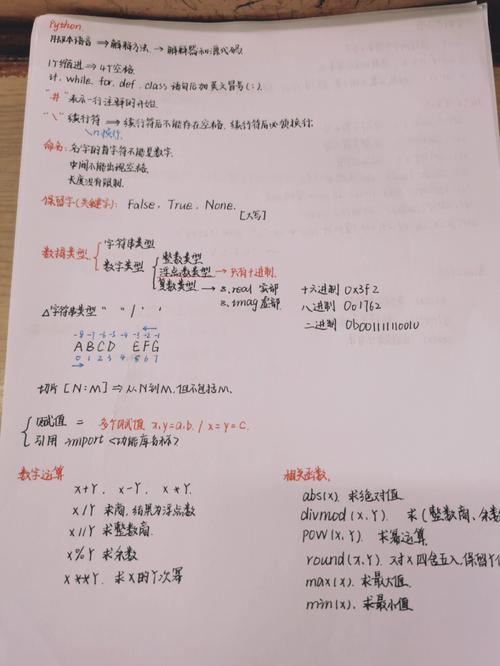 Python
脚本语言 ⇒ 解释方法 → 解释器和源代码.
1个缩进 → 4个空格.
if. while. for. def. class 语句后加英文冒号(:).
"#" 表示一行注释的开始.
"\" 续行符 ⇒ 续行符后不能存在空格. 续行符后必须换行.
\n换行.
命名: 名字的首字符不能是数字.
中间不能出现空格.
长度没有限制.
保留字(关键字): False, True, None.
[大写]
数据类型 { 字符串类型
数字类型 { 整数类型
浮点数类型 → 只有十进制.
复数类型 → z.real 实部
z.imag 虚部.
十六进制 0x3f2
八进制 0o1762
二进制 0b001111110010
△字符串类型 " " / ' '
-8 -7 -6 -5 -4 -3 -2 -1
A B C D E F G
0 1 2 3 4 5 6 7
切片 [N:M] ⇒ 从N到M. 但不包括M.
{ 赋值 = 多个赋值 x,y=a,b. / x=y=c.
引用 import <功能库名称>
数字运算
x+Y. x-Y. x*Y.
x/Y 求商, 结果为浮点数
x//Y 求整数商.
x%Y 求余数
x**Y. 求x的Y次幂
相关函数.
abs(x). 求绝对值
divmod(x,Y). 求(整数商、余数
pow(x,Y). 求幂运算
round(x,Y). 对x四舍五入, 保留Y位
max(x). 求最大值.
min(x). 求最小值